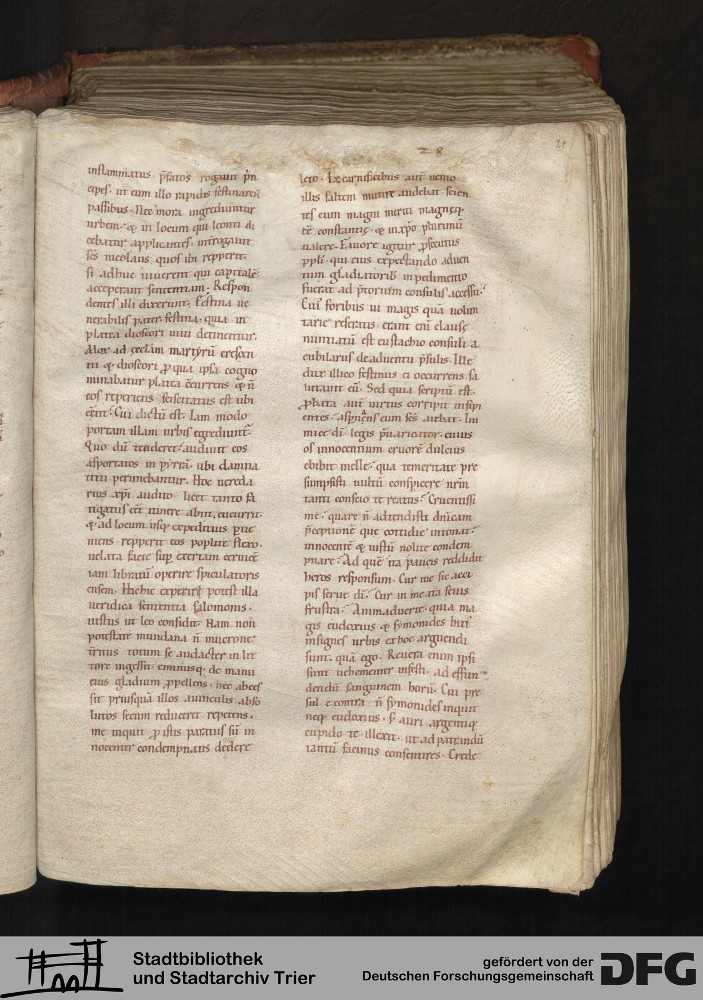 28
21
inflammatus p̄fatos rogauit p̄n
cipes. ut cum illo rapidis festinarent
passibus. Nec mora ingrediuntur
urbem. & in locum qui leonti di
cebatur applicantes. int̄rogauit
sc̄s nicolaus quos ibi repperit.
si adhuc uiuerent qui capitalē
acceperant sententiam. Respon
dentes illi dixerunt. Festina ue
nerabilis pater. festina. quia in
platea dioscori uiui detinentur.
Mox ad ęcc̄lam martyrū crescen
tii & dioscori ꝓ qua ipsa cogno
minabatur platea c̄currens & n̄
eos reperiens sciscitatus est ubi
eēnt. Cui dictū est. Iam modo
portam illam urbis egrediunt̄.
Quo dū tenderet. audiuit eos
asportatos in pyrrā. ubi damna
titii perimebantur. Hoc uereda
rius xp̄i audito licet tanto fa
tigatus eēt itinere abiit. cucurrit.
& ad locum usq; expeditius ꝑue
niens repperit eos poplite flexo.
uelata facie sup̄ exertam ceruicē
iam libratū operire spiculatoris
ensem. Hic hic experiri potest illa
ueridica sententia salomonis.
iustus ut leo confidit. Nam non
potestate mundana n̄ mucrone
t̄ritus totum se audacter in lic
tore ingessit. eminusq; de manu
eius gladium ꝓpellens. nec abces
sit priusquā illos a uinculis abso
lutos secum reduceret repetens.
me inquit ꝓ istis paratus sū in
nocenter condempnatis dedere
leto. Ex carnificibus aut̄ nemo
illis saltem mutire audebat scien
tes eum magni meriti magnęq;
eē constantię. & in xp̄o plurimū
ualere. Fauore igitur ꝓsecutus
ppl̄i. qui eius expectando aduen
tum gladiatorib; inpedimento
fuerat ad p̄torium consulis accessit.
Cui foribus ui magis quā uolun
tarie reseratis erant enī clausę
nuntiatū est eustachio consuli a
cubilariis de aduentu p̄sulis. Ille
dux illico festinus ei occurrens sa
lutauit eū. Sed quia scriptū est.
ꝓbata aut̄ uirtus corripit insipi
entes. aspn̄gens eum sc̄s aiebat. In
imice di legis p̄uaricator. cuius
os innocentium cruorē dulcius
ebibit melle. qua temeritate pre
sumpsisti uultū conspicere nrm̄
tanti conscio te reatus? Cruentissi
me. quare n̄ adtendisti dn̄icam
p̄ceptionē que cottidie intonat.
innocentē & iustū nolite condem
pnare? Ad quē ita paucis reddidit
heros responsum. Cur me sic acci
pis serue di? Cur in me ita seuis
frustra? Animaduerte. quia ma
gis eudoxius & symonides hui᷒
insignes urbis ex hoc arguendi
sunt. quā ego. Reuera enim ipsi
sunt uehementer infesti. ad effun
dendū sanguinem horū. Cui pre
sul e contra n̄ symonides inquit
neq; eudoxius. s; auri argentiq;
cupido te illexit. ut ad patrandū
tantū facinus consentires. Crede
Stadtbibliothek
und Stadtarchiv Trier
gefördert von der
Deutschen Forschungsgemeinschaft
DFG